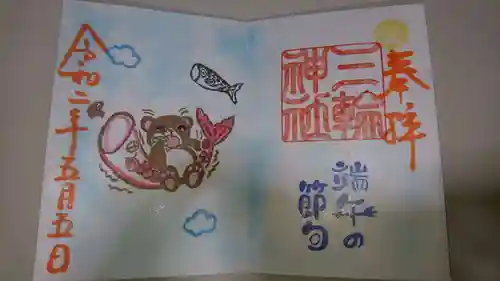 奉拝
三輪
神社
端午の
節句
令和二年五月五日